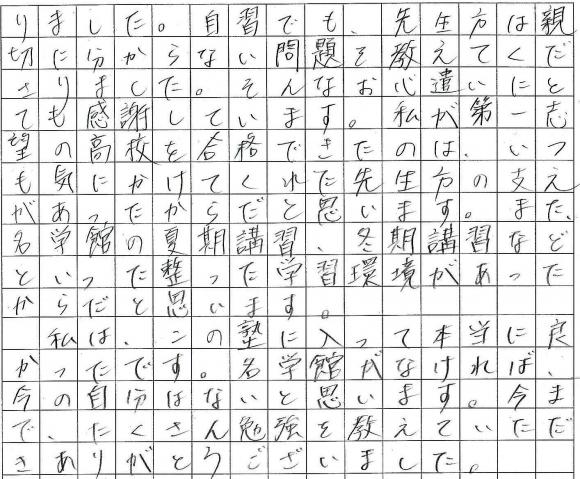 りました。自習でも、先生方は親
切に分からない問題を教えてくだ
さりました。そんなお心遣いにと
ても感謝しています。私が第一志
望の高校を合格できたのは、いつ
も気にかけてくれた先生方の支え
があったからだと思います。また、
名学館の夏期講習、冬期講習など
といった整った学習環境があった
からだと思います。
私は、この塾に入って本当に良
かったです。名学館がなければ、
今の自分はないと思います。今ま
で、たくさん勉強を教えていただ
きありがとうございました。